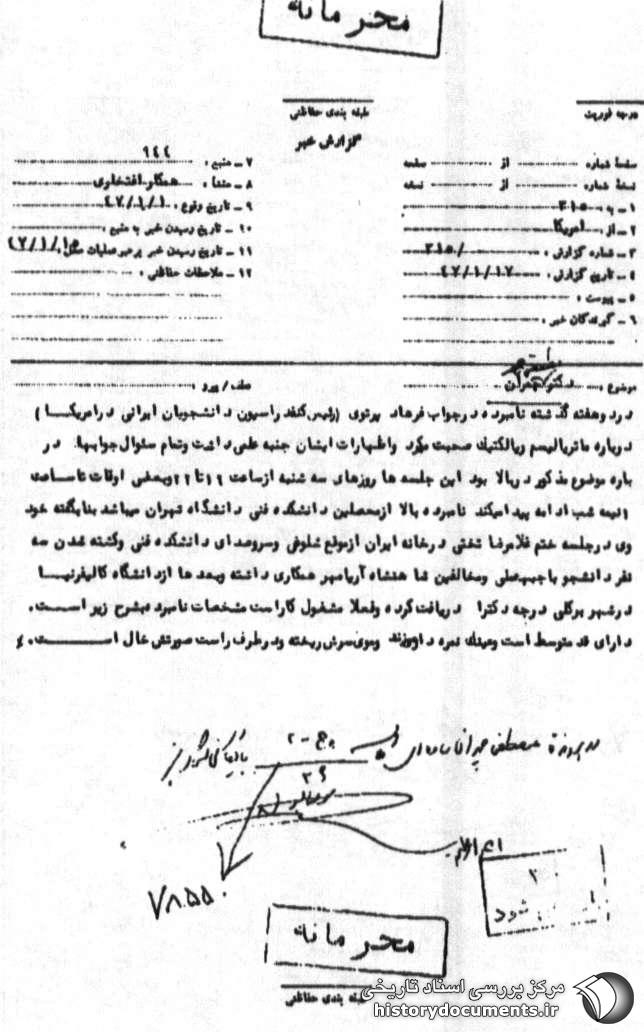 محرمانه
درجه فوریت
طبقه بندی حفاظتی
گزارش خبر
صفحهٔ شماره از صفحه
نسخهٔ شماره از نسخه
۱ ـ به ۳۱۵
۲ ـ از آمریکا
۳ ـ شماره گزارش : /۳۱۵
۴ ـ تاریخ گزارش : ۴۷/۱/۱۷
۵ ـ پیوست :
۶ ـ گیرندگان خبر :
۷ ـ منبع :
۸ ـ منشأ : همکار افتخاری
۹ ـ تاریخ وقوع : ۴۷/۱/۱
۱۰ ـ تاریخ رسیدن خبر به منبع :
۱۱ ـ تاریخ رسیدن خبر به رهبر عملیات ۴۷/۱/۱۵
۱۲ ـ ملاحظات حفاظتی :
موضوع : دکتر چمران
عطف / پیرو :
در دو هفته گذشته نامبرده در جواب فرهاد پرتوی (رئیس کنفدراسیون دانشجویان ایرانی در امریکا)
درباره ماتریالیسم دیالکتیک صحبت میکرد واظهارات ایشان جنبه علمی داشت وتمام سئوال جوابها در
باره موضوع مذکور در بالا بود این جلسه ها روزهای سه شنبه از ساعت ۱۹ تا ۲۲ وبعضی اوقات تا ساعت
۱ نیمه شب ادامه پیدا میکند نامبرده بالا از محصلین دانشکده فنی دانشگاه تهران میباشد بنابگفته خود
وی در جلسه ختم غلامرضا تختی در خانه ایران از موقع شلوغی وسروصدای دانشکده فنی وکشته شدن سه
نفر دانشجو با جبهه ملی ومخالفین شاهنشاه آریامهر همکاری داشته وبعدها از دانشگاه کالیفرنیا
در شهر برکلی درجه دکترا دریافت کرده وفعلا مشغول کار است مشخصات نامبرده بشرح زیر است.
دارای قد متوسط است وعینک نمره دار میزند وموی سرش ریخته ودر طرف راست صورتش خال است.
در پرونده مصطفی چمران ساوه‌ای
۷۸۵۵۰
محرمانه
طبقه بندی حفاظتی
مرکز بررسی اسناد تاریخی
historydocuments.ir